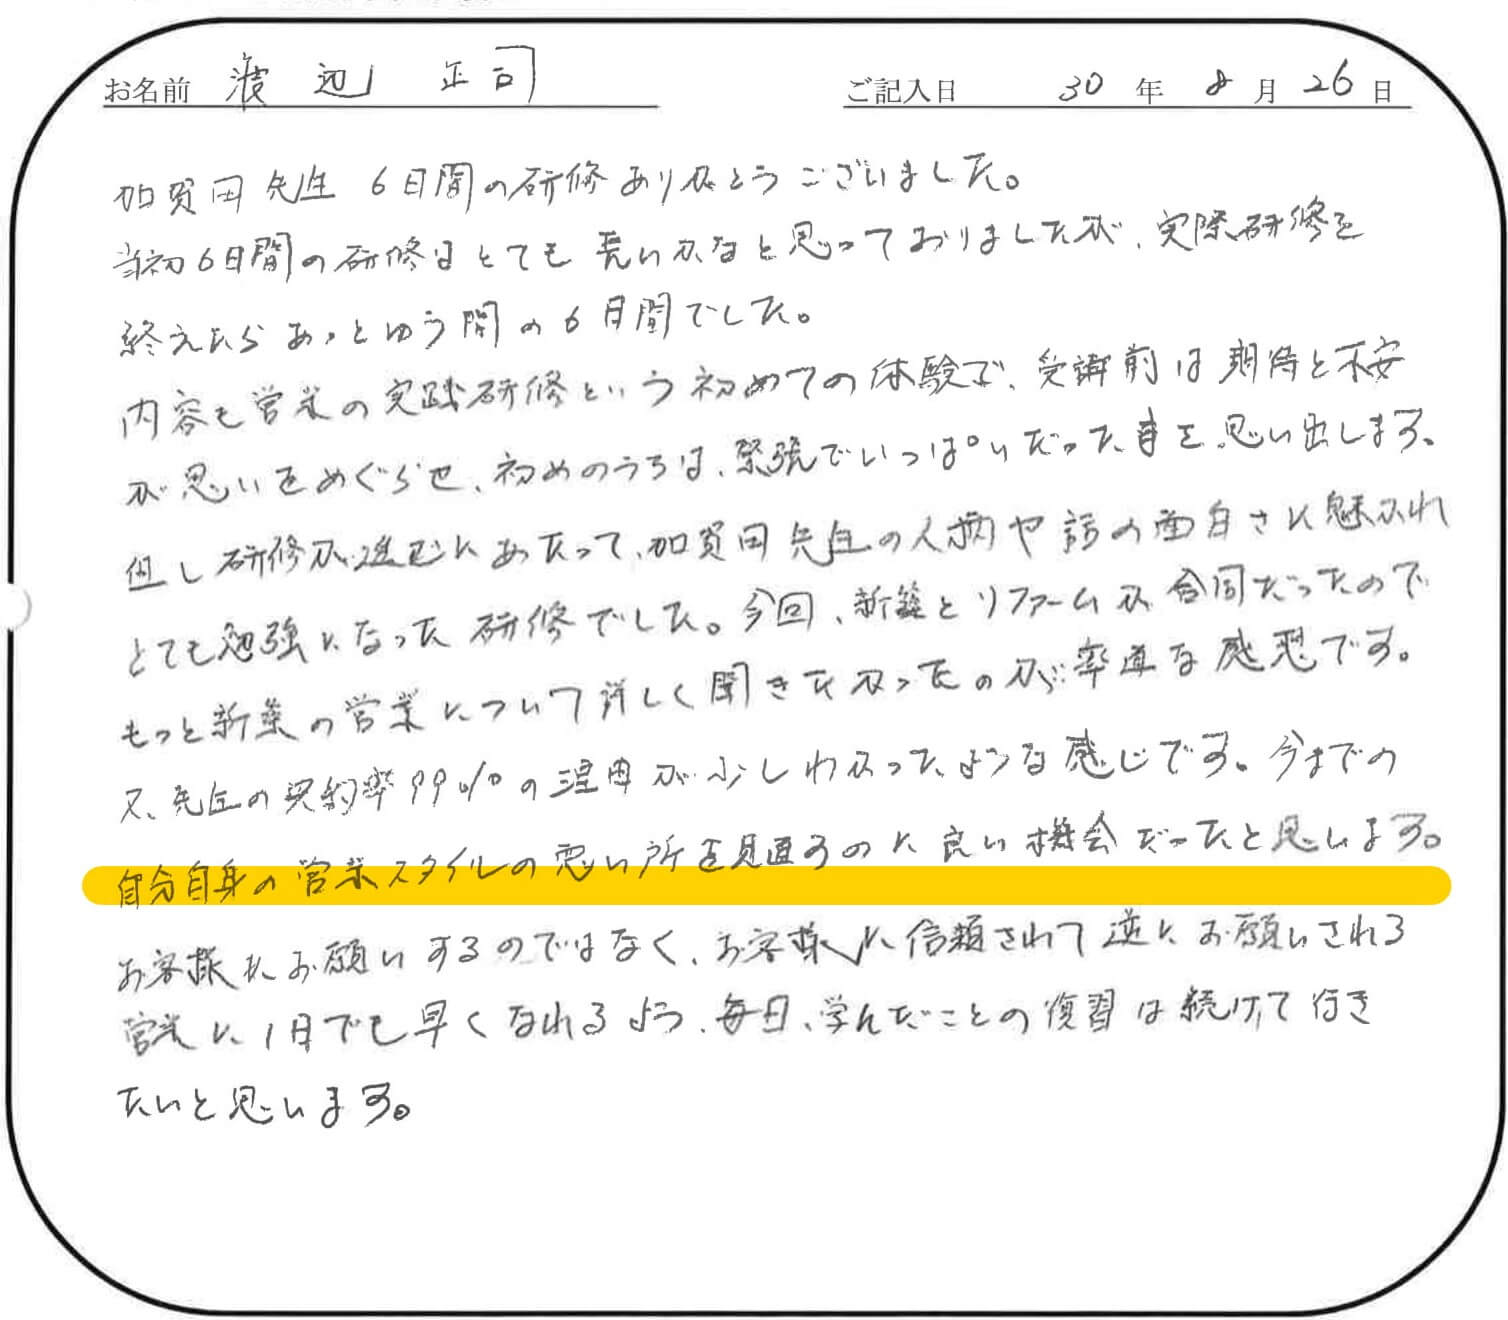 お名前 渡辺 正司 ご記入日 30年 8月 26日
加賀田先生 6日間の研修ありがとうございました。
当初6日間の研修はとても長いかなと思っておりましたが、実際研修を
終えたらあっとゆう間の6日間でした。
内容も営業の実践研修という初めての体験で、受講前は期待と不安
が思いをめぐらせ、初めのうちは、緊張でいっぱいだった事を思い出します。
但し研修が進むにあたって、加賀田先生の人柄や話の面白さに魅かれ
とても勉強になった研修でした。今回、新築とリフォームが合同だったので
もっと新築の営業について詳しく聞きたかったのが率直な感想です。
又、先生の契約率99%の理由が少しわかったような感じです。今までの
自分自身の営業スタイルの悪い所を見直すのに良い機会だったと思います。
お客様にお願いするのではなく、お客様に信頼されて逆にお願いされる
営業に1日でも早くなれるよう、毎日、学んだことの復習は続けて行き
たいと思います。